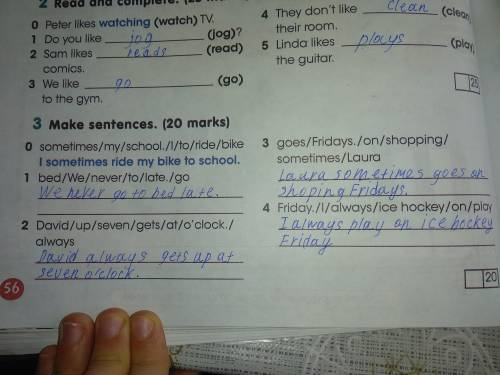 2 Read and complete. (25
0 Peter likes watching (watch) TV.
1 Do you like jog (jog)?
2 Sam likes reads (read)
comics.
3 We like go (go)
to the gym.
4 They don't like clean (clean
their room.
5 Linda likes plays (play
the guitar.
25
3 Make sentences. (20 marks)
0 sometimes/my/school./I/to/ride/bike
I sometimes ride my bike to school.
1 bed/We/never/to/late./go
We never go to bed late.
2 David/up/seven/gets/at/o'clock./
always
David always gets up at
seven o'clock.
3 goes/Fridays./on/shopping/
sometimes/Laura
Laura sometimes goes on
shoping Fridays.
4 Friday./I/always/ice hockey/on/play
I always play on ice hockey
Friday
20
56